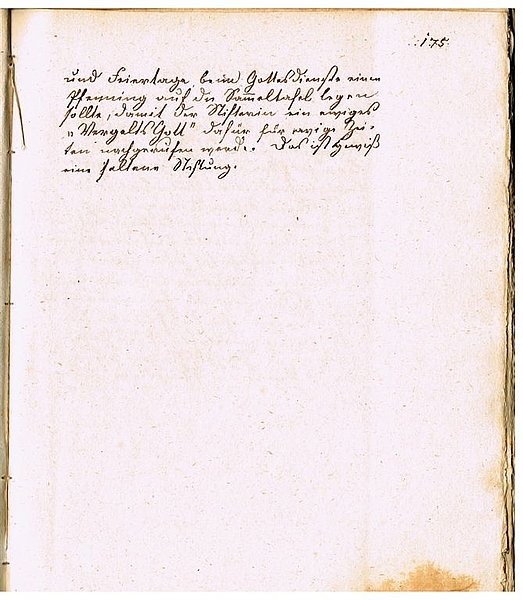 175.
und Feiertage beim Gottesdienste einen
Pfenning auf die Sam̅eltafel legen
sollte, damit der Stifterin ein ewiges
"Vergelts Gott" dafür für ewige Zei-
ten nachgerufen werde. Das ist gewiß
eine seltene Stiftung.